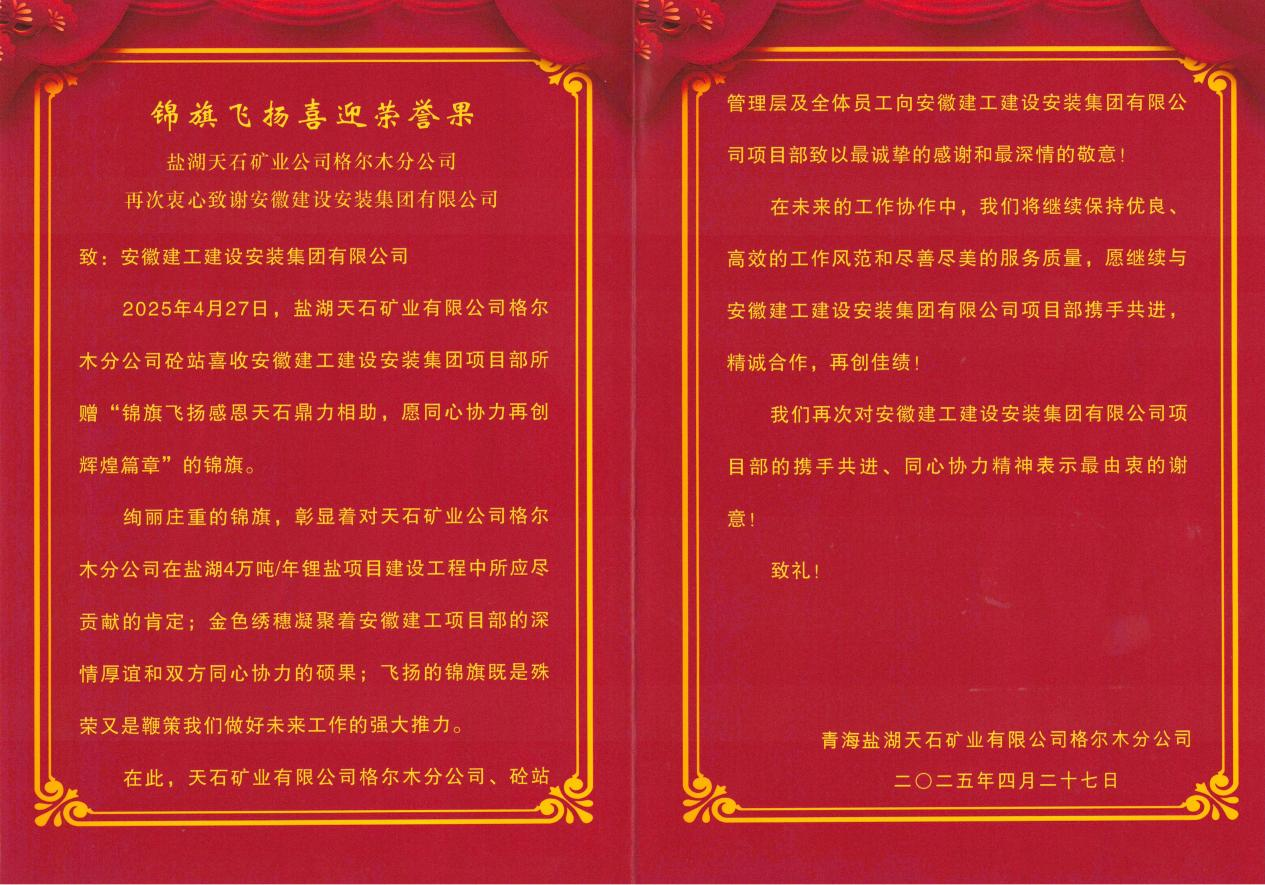 锦旗飞扬喜迎荣誉果
盐湖天石矿业公司格尔木分公司
再次衷心致谢安徽建设安装集团有限公司
致：安徽建工建设安装集团有限公司
2025年4月27日，盐湖天石矿业有限公司格尔
木分公司砼站喜收安徽建工建设安装集团项目部所
赠“锦旗飞扬感恩天石鼎力相助，愿同心协力再创
辉煌篇章”的锦旗。
绚丽庄重的锦旗，彰显着对天石矿业公司格尔
木分公司在盐湖4万吨/年锂盐项目建设工程中所应尽
贡献的肯定；金色绣穗凝聚着安徽建工项目部的深
情厚谊和双方同心协力的硕果；飞扬的锦旗既是殊
荣又是鞭策我们做好未来工作的强大推力。
在此，天石矿业有限公司格尔木分公司、砼站
管理层及全体员工向安徽建工建设安装集团有限公
司项目部致以最诚挚的感谢和最深情的敬意！
在未来的工作协作中，我们将继续保持优良、
高效的工作风范和尽善尽美的服务质量，愿继续与
安徽建工建设安装集团有限公司项目部携手共进，
精诚合作，再创佳绩！
我们再次对安徽建工建设安装集团有限公司项
目部的携手共进、同心协力精神表示最由衷的谢
意！
致礼！
青海盐湖天石矿业有限公司格尔木分公司
二〇二五年四月二十七日